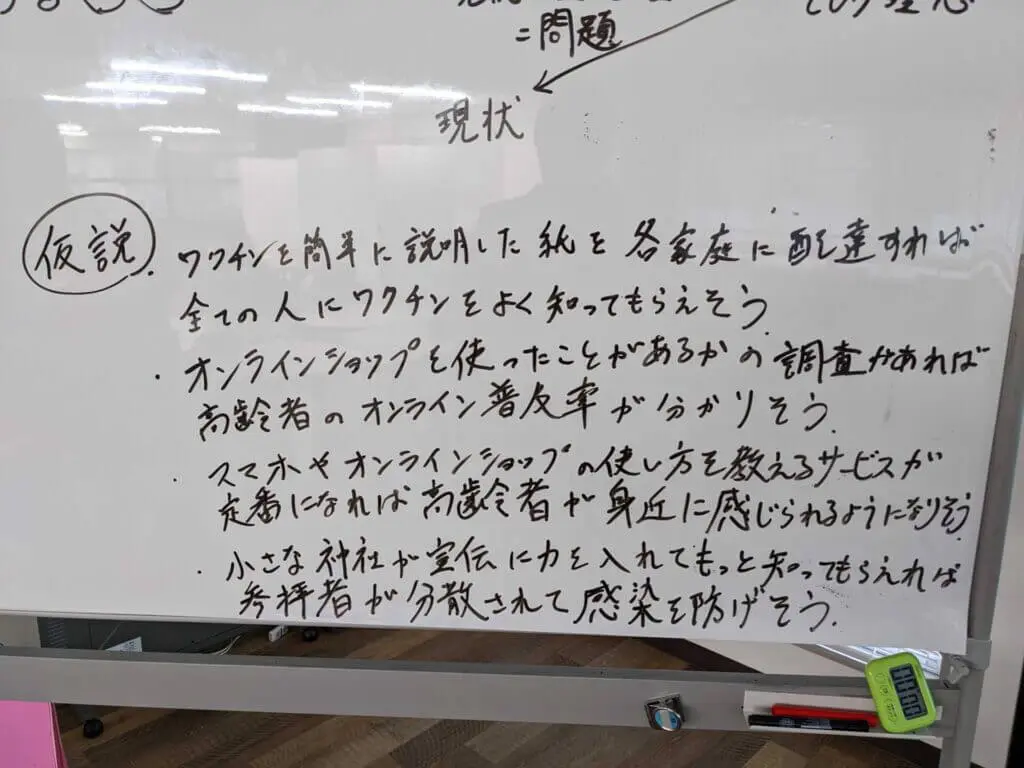 =問題
現状
仮説
・ワクチンを簡単に説明した紙を各家庭に配達すれば
全ての人にワクチンをよく知ってもらえそう.
・オンラインショップを使ったことがあるかの調査があれば
高齢者のオンライン普及率が分かりそう.
・スマホやオンラインショップの使い方を教えるサービスが
定番になれば高齢者が身近に感じられるようになりそう.
・小さな神社が宣伝に力を入れてもっと知ってもらえれば
参拝者が分散されて感染を防げそう.